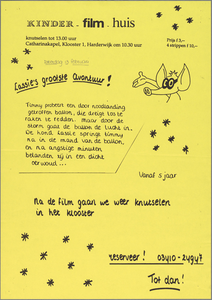 KINDER - film - huis
knutselen tot 13.00 uur
Catharinakapel, Klooster 1, Harderwijk om 10.30 uur
Prijs f 3,-
4 strippen f 10,-
Lassie's grootste Avontuur!
Timmy probeert een door noodlanding
getroffen ballon, die dreigt los te
raken te redden. Maar door de
storm gaat de ballon de lucht in.
De hond Lassie springt timmy
na in de mand van de ballon,
en na angstige minuten
belanden zij in een dicht
oerwoud...
Vanaf 5 jaar
Na de film gaan we weer knutselen
in het klooster
reserveer! 03410-24947
Tot dan!